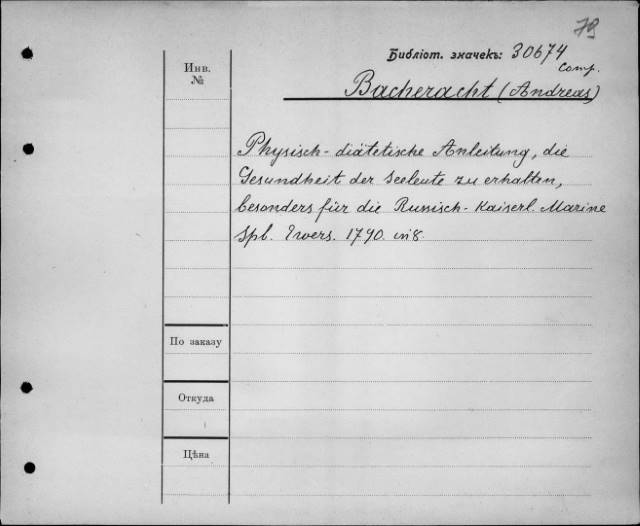 79
Библіот. значекъ: 30674
Comp.
Инв.
№
Bacheracht (Andreas)
Physisch-diätetische Anleitung, die
Gesundheit der Seeleute zu erhalten,
besonders für die Russisch-Kaiserl. Marine
Spb. 1790. in 8.
По заказу
Откуда
Цѣна